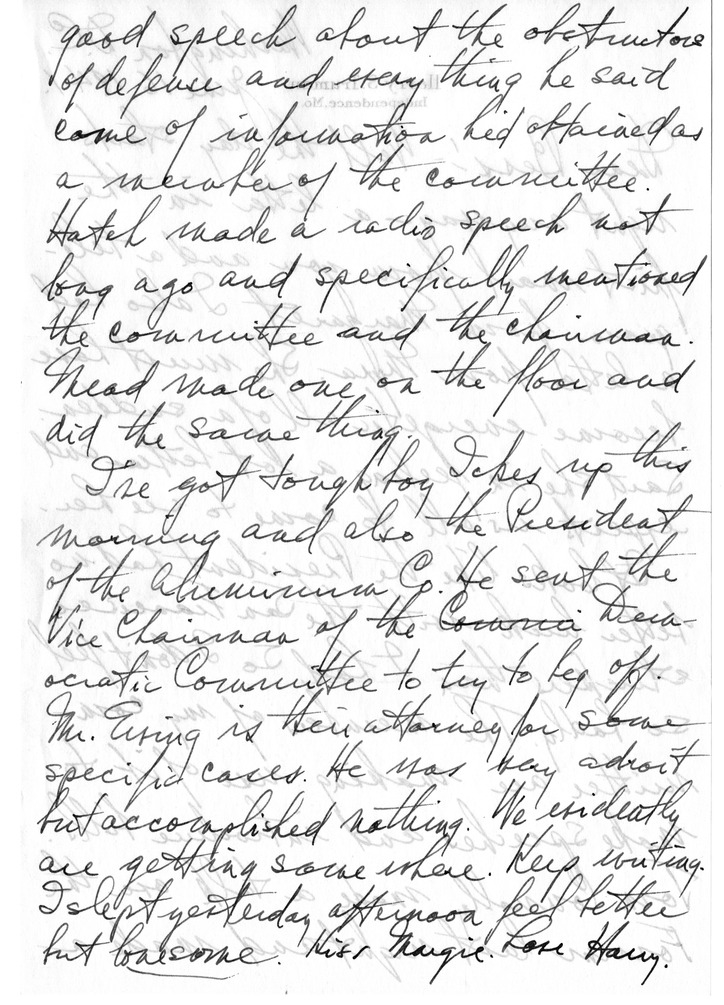 good speech about the obstructors
of defense and every thing he said
come of information he'd obtained as
a member of the committee.
Hatch made a radio speech not
long ago and specifically mentioned
the committee and the chairman.
Mead made one on the floor and
did the same thing.
I've got tough boy Ickes up this
morning and also the President
of the Aluminum Co. He sent the
Vice Chairman of the Commi Dem-
ocratic Committee to try to beg off.
Mr. Ewing is their attorney for some
specific cases. He was very adroit
but accomplished nothing. We evidently
are getting some where. Keep writing.
I slept yesterday afternoon feel better
but lonesome. Kiss Margie. Love Harry.